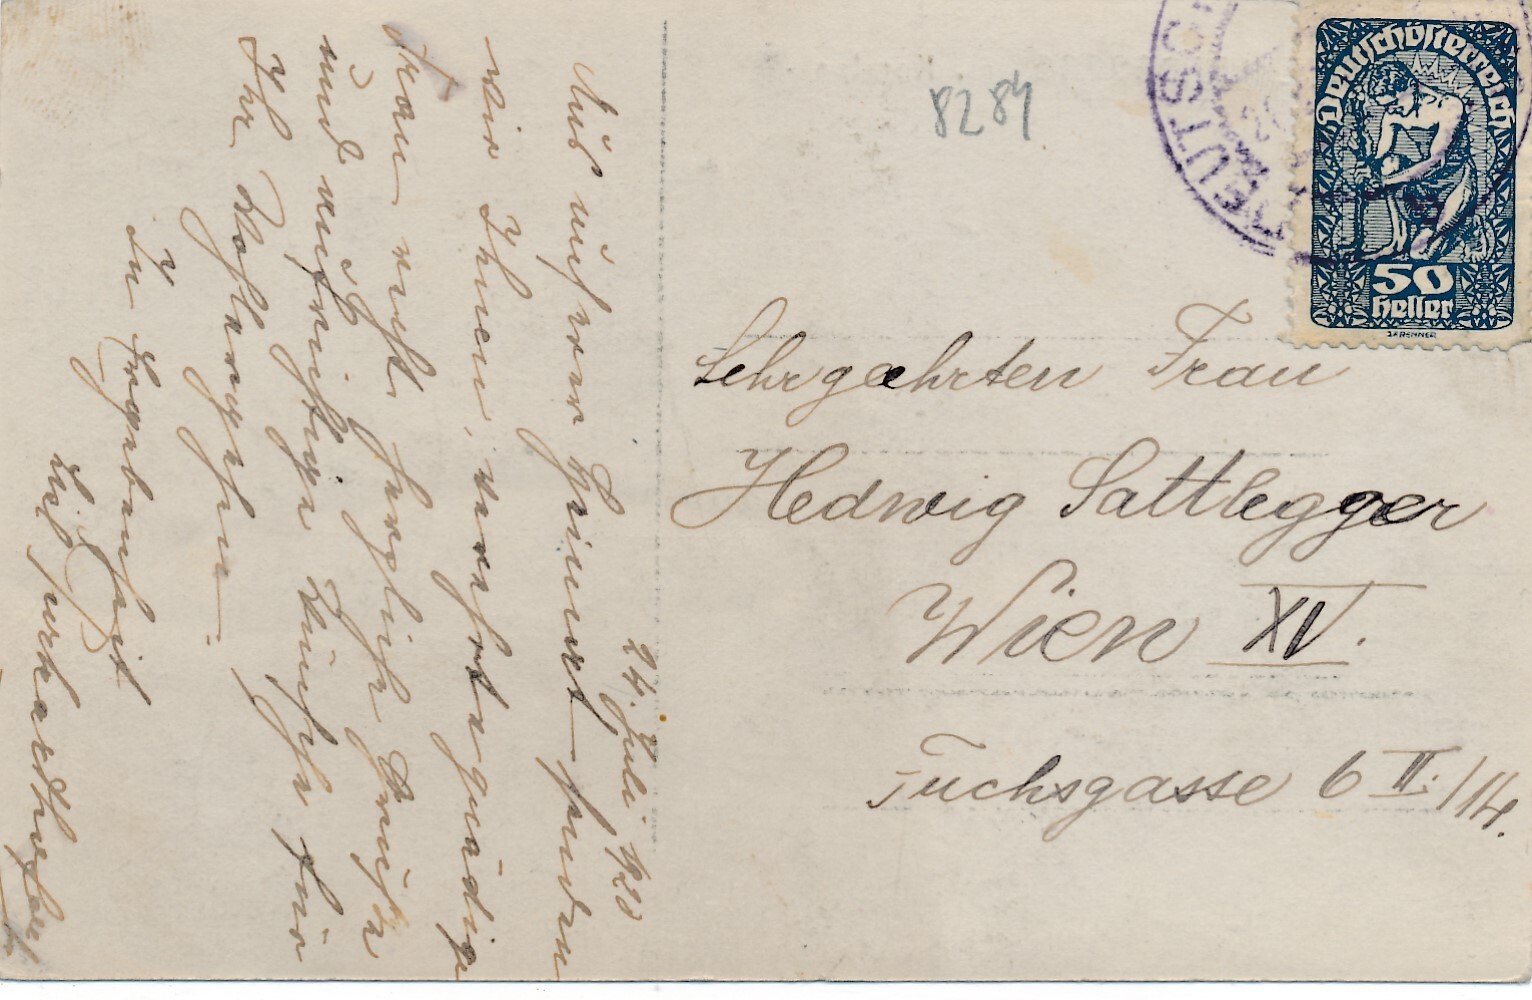 24. Juli 1920
Aus unserem Heimort senden
wir Ihnen, verehrte gnädige
Frau recht herzliche Grüße
und aufrichtige Wünsche für
Ihr Wohlergehen.
In Ergebenheit
8284
DEUTSCH
Deutschösterreich
50
Heller
Sehrgeehrten Frau
Hedwig Sattlegger
Wien XV.
Fuchsgasse 6 II./14.